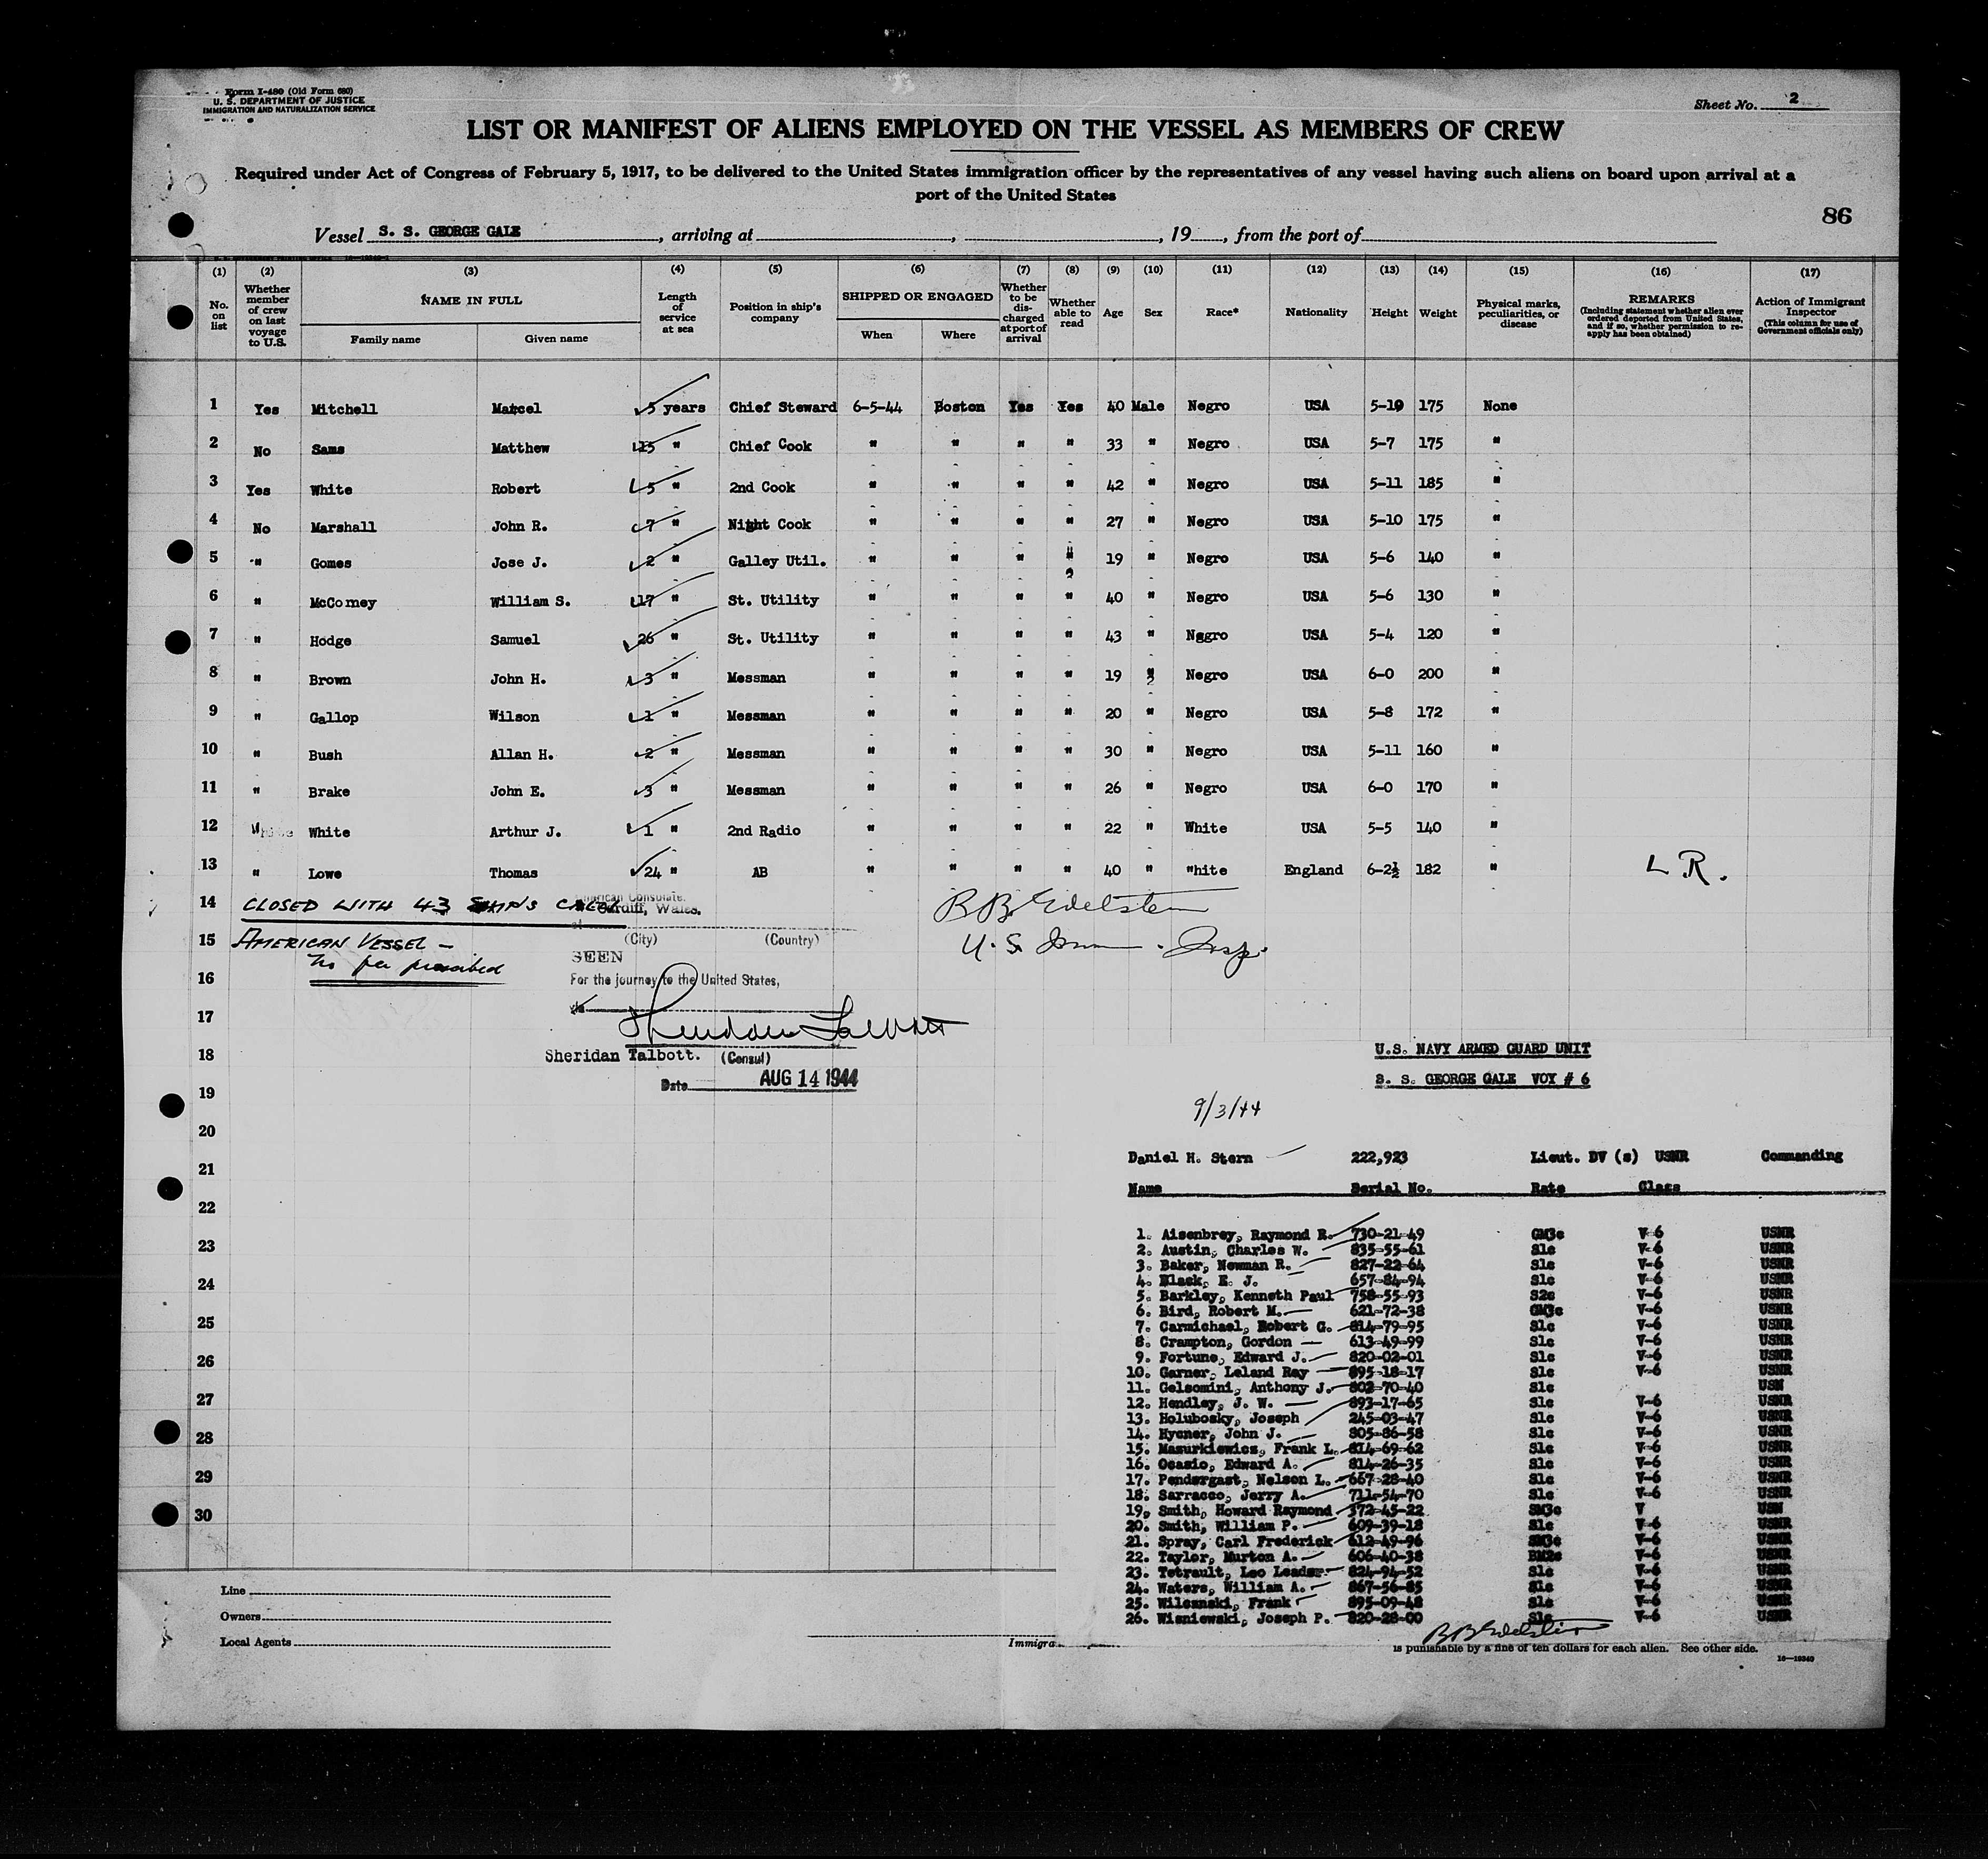 Form I-480 (Old Form 680)
U. S. DEPARTMENT OF JUSTICE
IMMIGRATION AND NATURALIZATION SERVICE
Sheet No. 2
LIST OR MANIFEST OF ALIENS EMPLOYED ON THE VESSEL AS MEMBERS OF CREW
Required under Act of Congress of February 5, 1917, to be delivered to the United States immigration officer by the representatives of any vessel having such aliens on board upon arrival at a
port of the United States
86
Vessel S. S. GEORGE GALE, arriving at , , 19 , from the port of
(1) (2) (3) (4) (5) (6) (7) (8) (9) (10) (11) (12) (13) (14) (15) (16) (17)
No. on list
Whether member of crew on last voyage to U.S.
NAME IN FULL
Family name Given name
Length of service at sea
Position in ship's company
SHIPPED OR ENGAGED
When Where
Whether to be discharged at port of arrival
Whether able to read
Age
Sex
Race*
Nationality
Height
Weight
Physical marks, peculiarities, or disease
REMARKS
(Including statement whether alien ever ordered deported from United States, and if so, whether permission to re-apply has been obtained)
Action of Immigrant Inspector
(This column for use of Government officials only)
1 Yes Mitchell Marcel 5 years Chief Steward 6-5-44 Boston Yes Yes 40 Male Negro USA 5-10 175 None
2 No Sams Matthew 15 " Chief Cook " " " " 33 " Negro USA 5-7 175 "
3 Yes White Robert 5 " 2nd Cook " " " " 42 " Negro USA 5-11 185 "
4 No Marshall John R. 7 " Night Cook " " " " 27 " Negro USA 5-10 175 "
5 " Gomes Jose J. 2 " Galley Util. " " " " 19 " Negro USA 5-6 140 "
6 " McComey William S. 17 " St. Utility " " " " 40 " Negro USA 5-6 130 "
7 " Hodge Samuel 26 " St. Utility " " " " 43 " Negro USA 5-4 120 "
8 " Brown John H. 3 " Messman " " " " 19 " Negro USA 6-0 200 "
9 " Gallop Wilson 1 " Messman " " " " 20 " Negro USA 5-8 172 "
10 " Bush Allan H. 2 " Messman " " " " 30 " Negro USA 5-11 160 "
11 " Brake John E. 3 " Messman " " " " 26 " Negro USA 6-0 170 "
12 " White Arthur J. 1 " 2nd Radio " " " " 22 " White USA 5-5 140 "
13 " Lowe Thomas 24 " AB " " " " 40 " "hite England 6-2½ 182 " L. R.
14 CLOSED WITH 43 SHIPS CREW
American Consulate.
Cardiff, Wales.
BB Edelstein
15 AMERICAN VESSEL —
(City) (Country)
U. S. Imm. Insp.
no fee prescribed
SEEN
16
For the journey to the United States,
17
18 Sheridan Talbott. (Consul)
Date AUG 14 1944
19
20
21
22
23
24
25
26
27
28
29
30
U.S. NAVY ARMED GUARD UNIT
S. S. GEORGE GALE VOY # 6
9/3/44
Daniel H. Stern 222,923 Lieut. DV (s) USNR Commanding
Name Serial No. Rate Class
1. Aisenbrey, Raymond R. 730-21-49 GM3c V-6 USNR
2. Austin, Charles W. 835-55-61 S1c V-6 USNR
3. Baker, Newman R. 827-22-64 S1c V-6 USNR
4. Black, E. J. 657-84-94 S1c V-6 USNR
5. Barkley, Kenneth Paul 758-55-93 S2c V-6 USNR
6. Bird, Robert M. 621-72-38 GM3c V-6 USNR
7. Carmichael, Robert G. 814-79-95 S1c V-6 USNR
8. Crampton, Gordon 613-49-99 S1c V-6 USNR
9. Fortune, Edward J. 820-02-01 S1c V-6 USNR
10. Garner, Leland Ray 895-18-17 S1c V-6 USNR
11. Gelsomini, Anthony J. 802-70-40 S1c USN
12. Hendley, J. W. 893-17-65 S1c V-6 USNR
13. Holubosky, Joseph 245-03-47 S1c V-6 USNR
14. Hycner, John J. 805-86-58 S1c V-6 USNR
15. Masurkiewics, Frank L. 814-69-62 S1c V-6 USNR
16. Ocasio, Edward A. 814-26-35 S1c V-6 USNR
17. Pendergast, Nelson L. 667-28-40 S1c V-6 USNR
18. Sarracco, Jerry A. 711-54-70 S1c V-6 USNR
19. Smith, Howard Raymond 372-45-22 SM3c V USN
20. Smith, William P. 609-39-18 S1c V-6 USNR
21. Spray, Carl Frederick 612-49-96 SM3c V-6 USNR
22. Taylor, Murton A. 606-40-38 BM2c V-6 USNR
23. Tetrault, Leo Leader 824-94-52 S1c V-6 USNR
24. Waters, William A. 867-56-85 S1c V-6 USNR
25. Wilcanski, Frank 895-09-48 S1c V-6 USNR
26. Wisniewski, Joseph P. 820-28-00 S1c V-6 USNR
BB Edelstein
Line
Owners
Local Agents
Immigra
is punishable by a fine of ten dollars for each alien. See other side.
16—19340